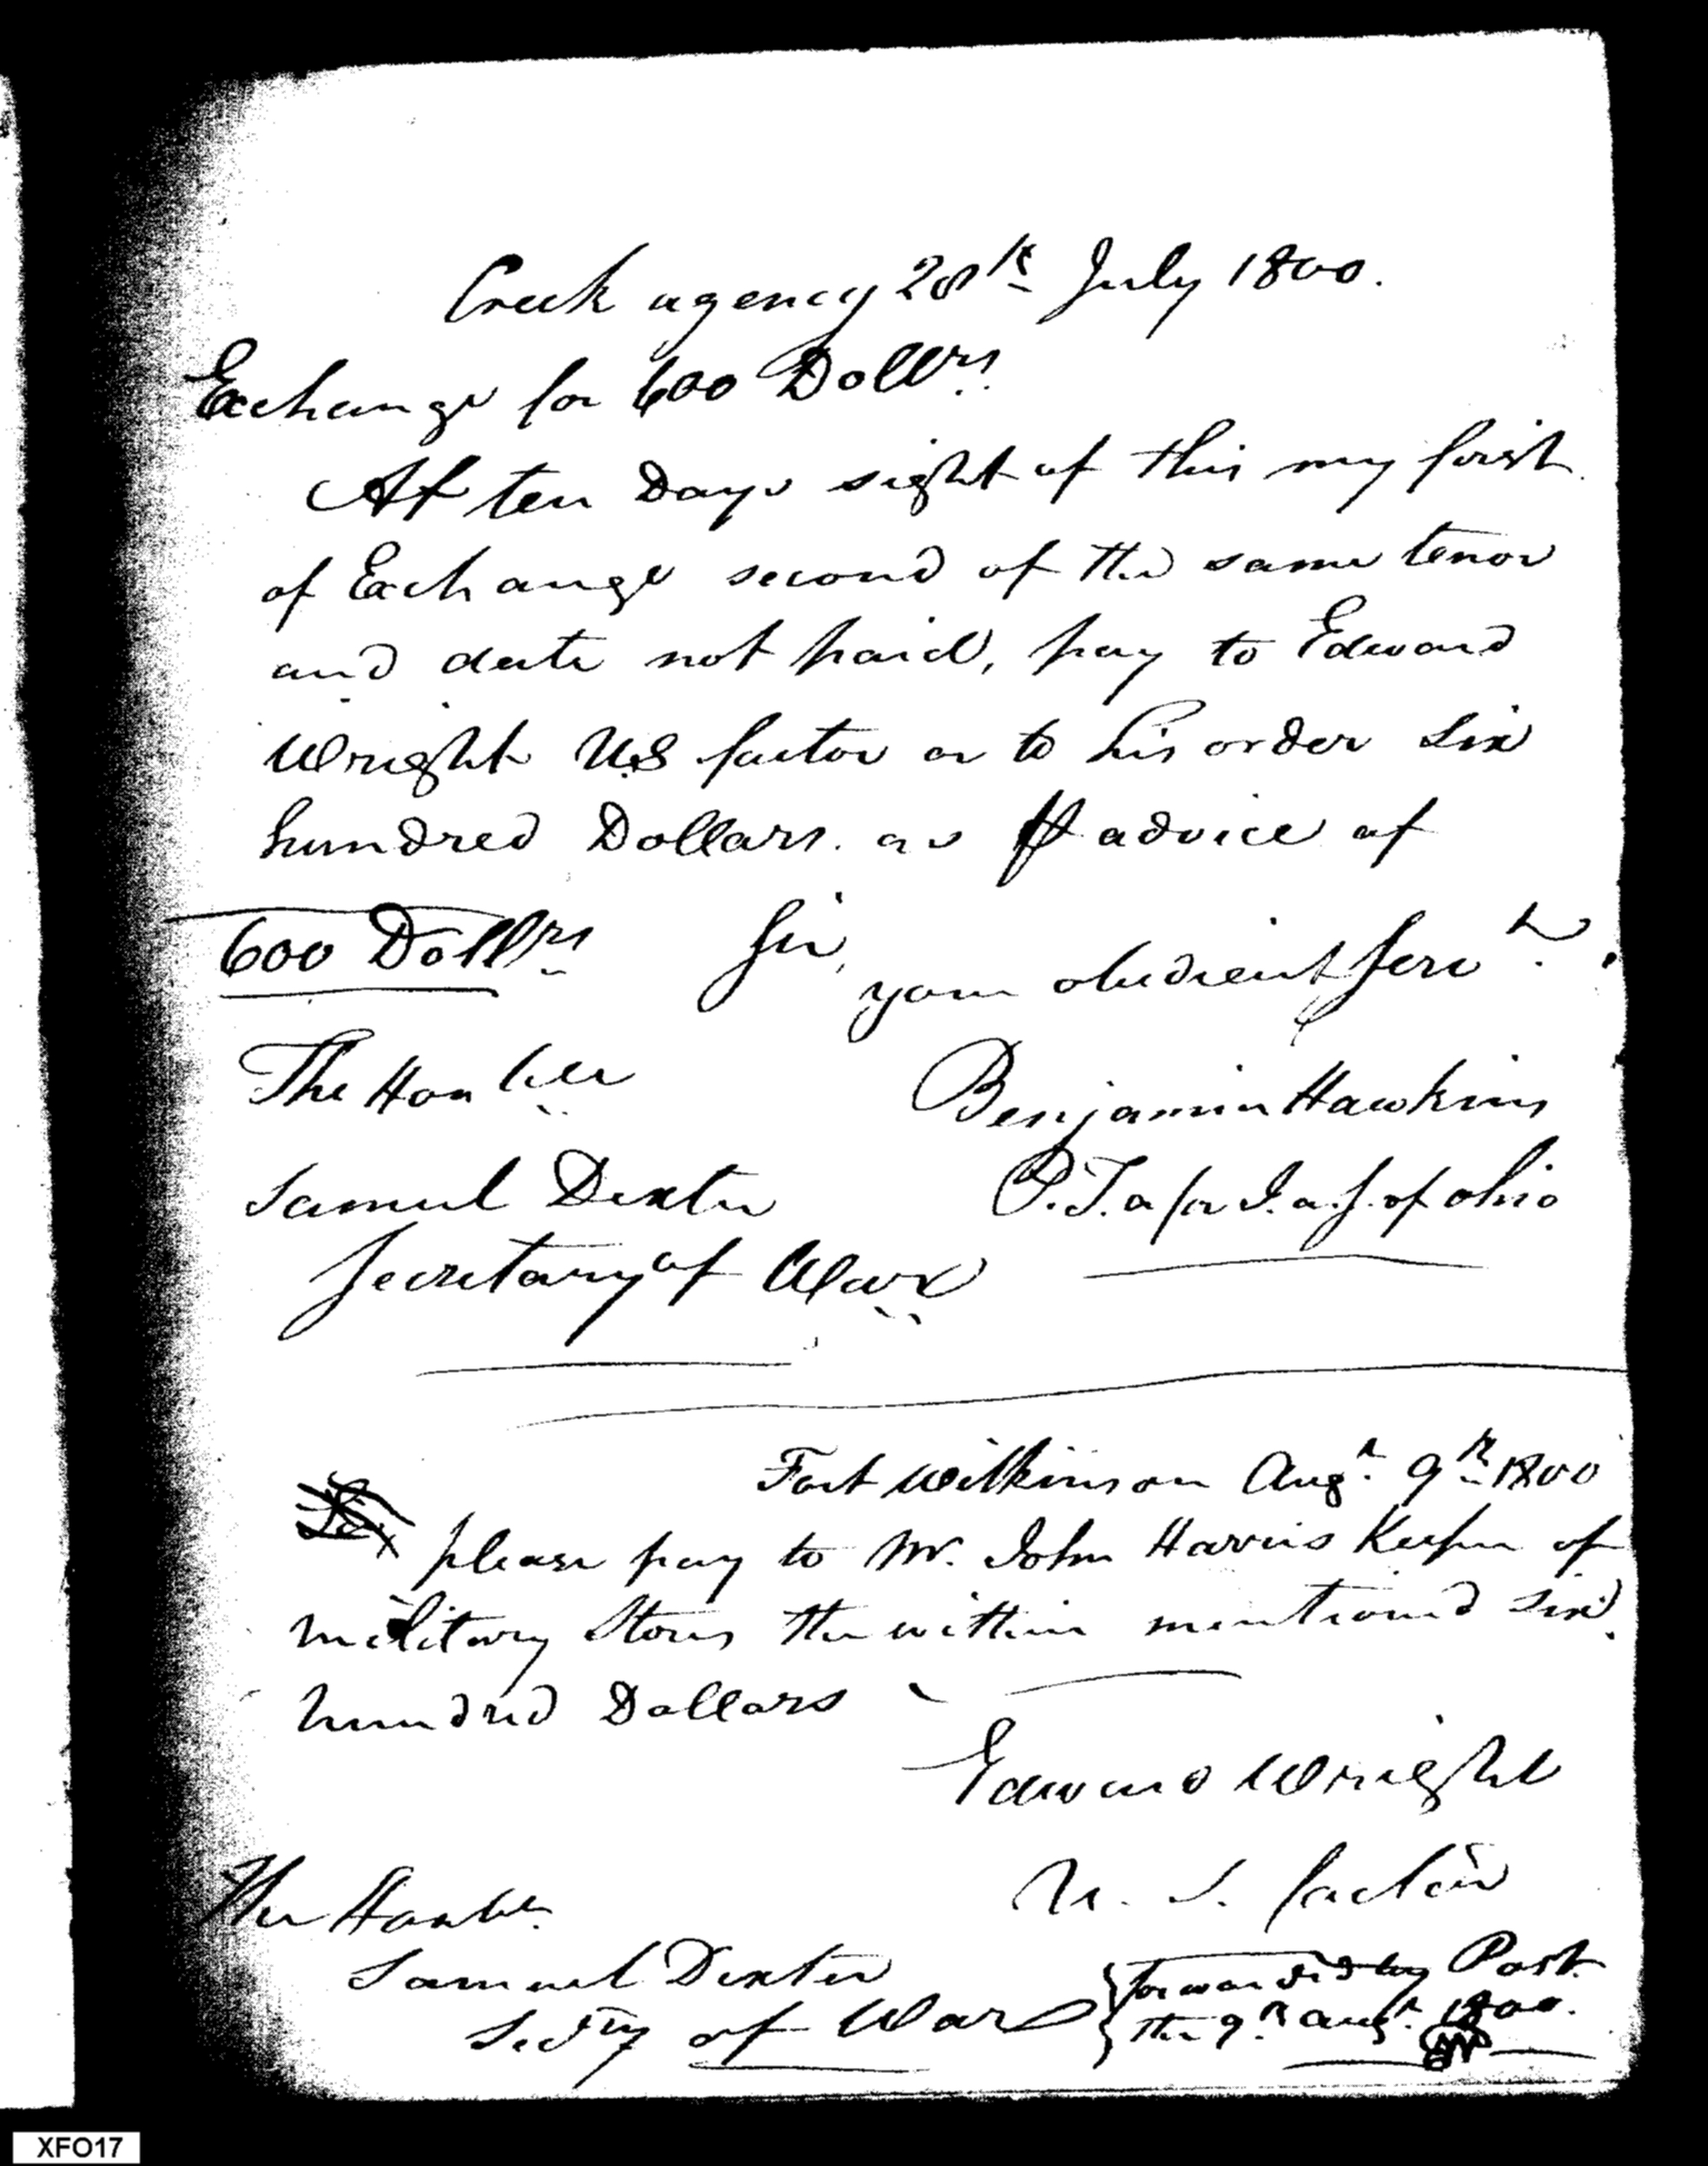 Creek agency 28th July 1800.
Exchange for 600 Dollrs.
At ten Days sight of this my first
of Exchange second of the same tenor
and date not paid, pay to Edward
Wright U.S factor or to his order six
hundred Dollars. as ⅌ advice of
600 Dollrs Sir,
your obedient Servt.
The Honble
Benjamin Hawkins
Samuel Dexter
P.T.a for I.a.S. of Ohio
Secretary of War
Fort Wilkinson Augt. 9th 1800
please pay to Mr. John Harris Keeper of
military Stores the within mentioned six
hundred Dollars
Edward Wright
U. S. factor
The Honble.
Samuel Dexter
Secty of War
forwarded by Post
the 9th augt. 1800.
XFO17